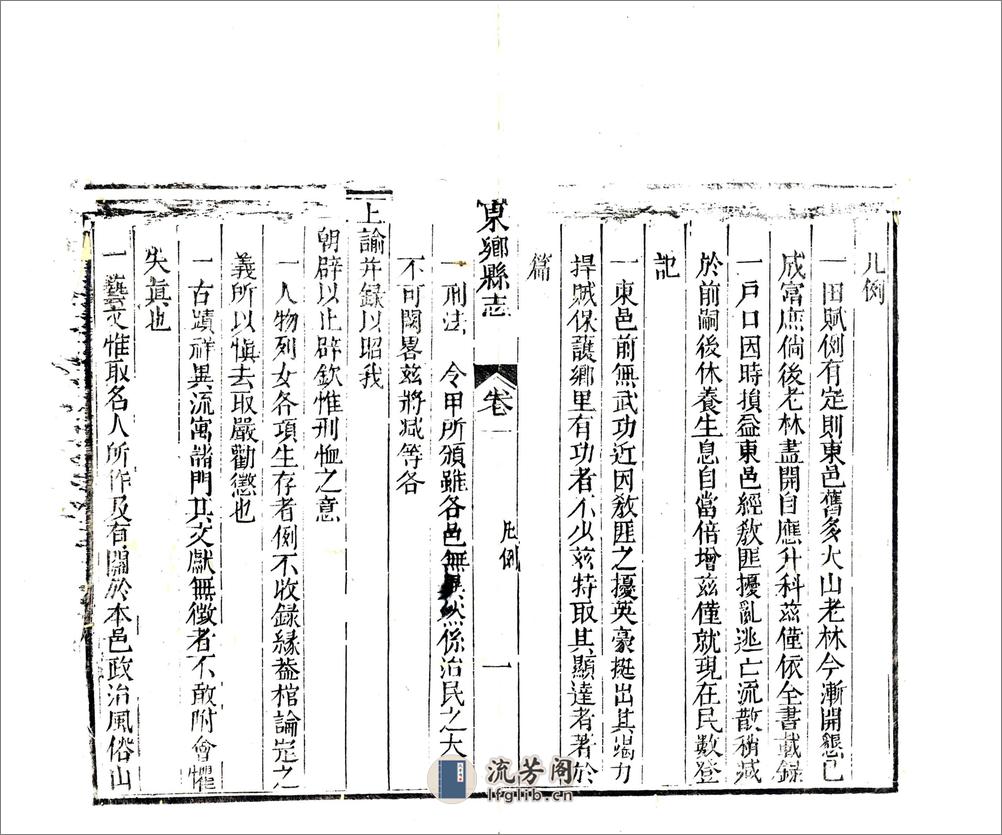 凡例
一田賦例有定則東邑舊多火山老林今漸開懇已
成富庶倘後老林盡開自應升科茲僅依全書載録
一戸口因時損益東邑經敎匪擾亂逃亡流散稍减
於前嗣後休養生息自當倍增茲僅就現在民數登
記
一東邑前無武功近因敎匪之擾英豪挺出其竭力
捍賊保護鄉里有功者不少茲特取其顯達者著於
篇
東鄉縣志
卷一
凡例
一
一刑法 令甲所頒雖各邑無異然係治民之大
不可闕畧茲將减等各
上諭并録以昭我
朝辟以止辟欽惟刑恤之意
一人物列女各項生存者例不收録緣葢棺論定之
義所以愼去取嚴勸懲也
一古蹟祥異流寓諸門其文獻無徵者不敢附會懼
失眞也
一藝文惟取名人所作及有關於本邑政治風俗山
流芳阁
lfglib.cn